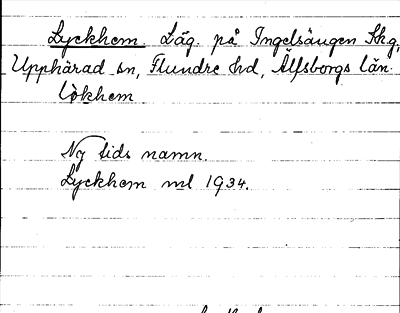 Lyckhem. Läg. på Ingelsäugen Skg,
Upphärad sn, Flundre hd, Älfsborgs län.
lökhem
Ny tids namn.
Lyckhem ml 1934.